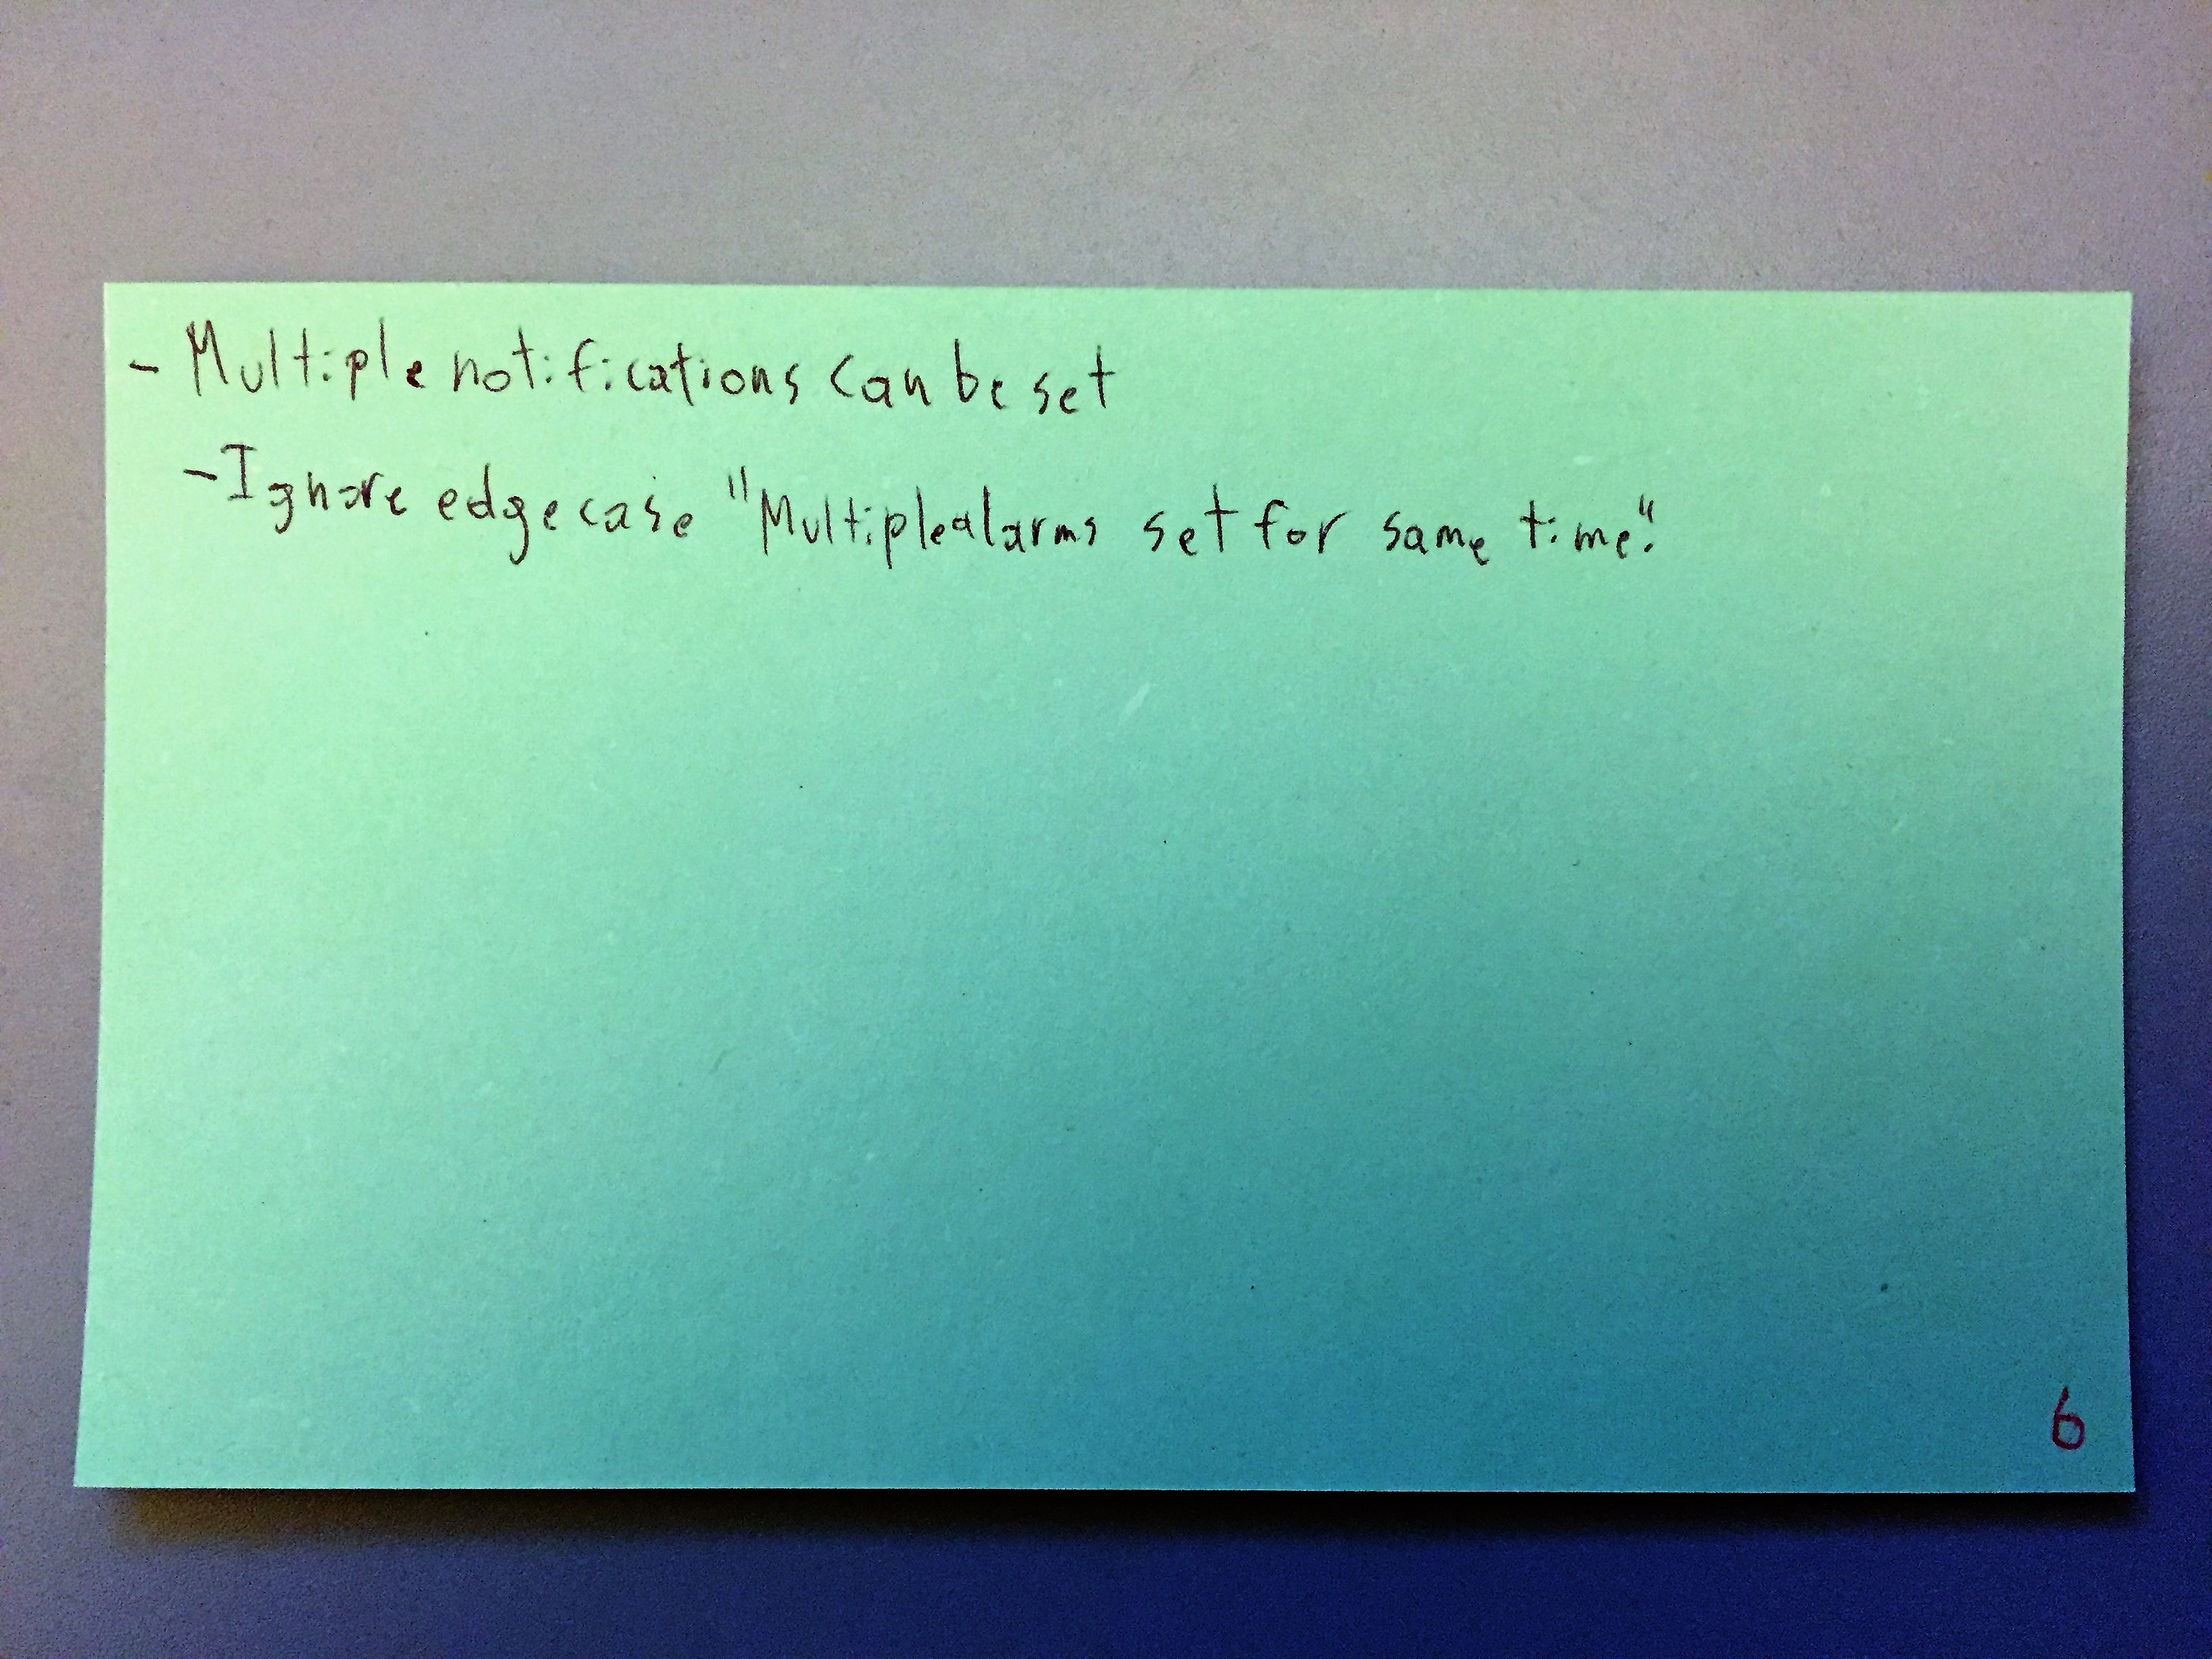 - Multiple notifications can be set
- Ignore edge case "Multiple alarms set for same time".
6